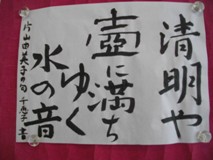 清明や
壺に満ち
ゆく
水の音
片山由美子の句 千鶴子書